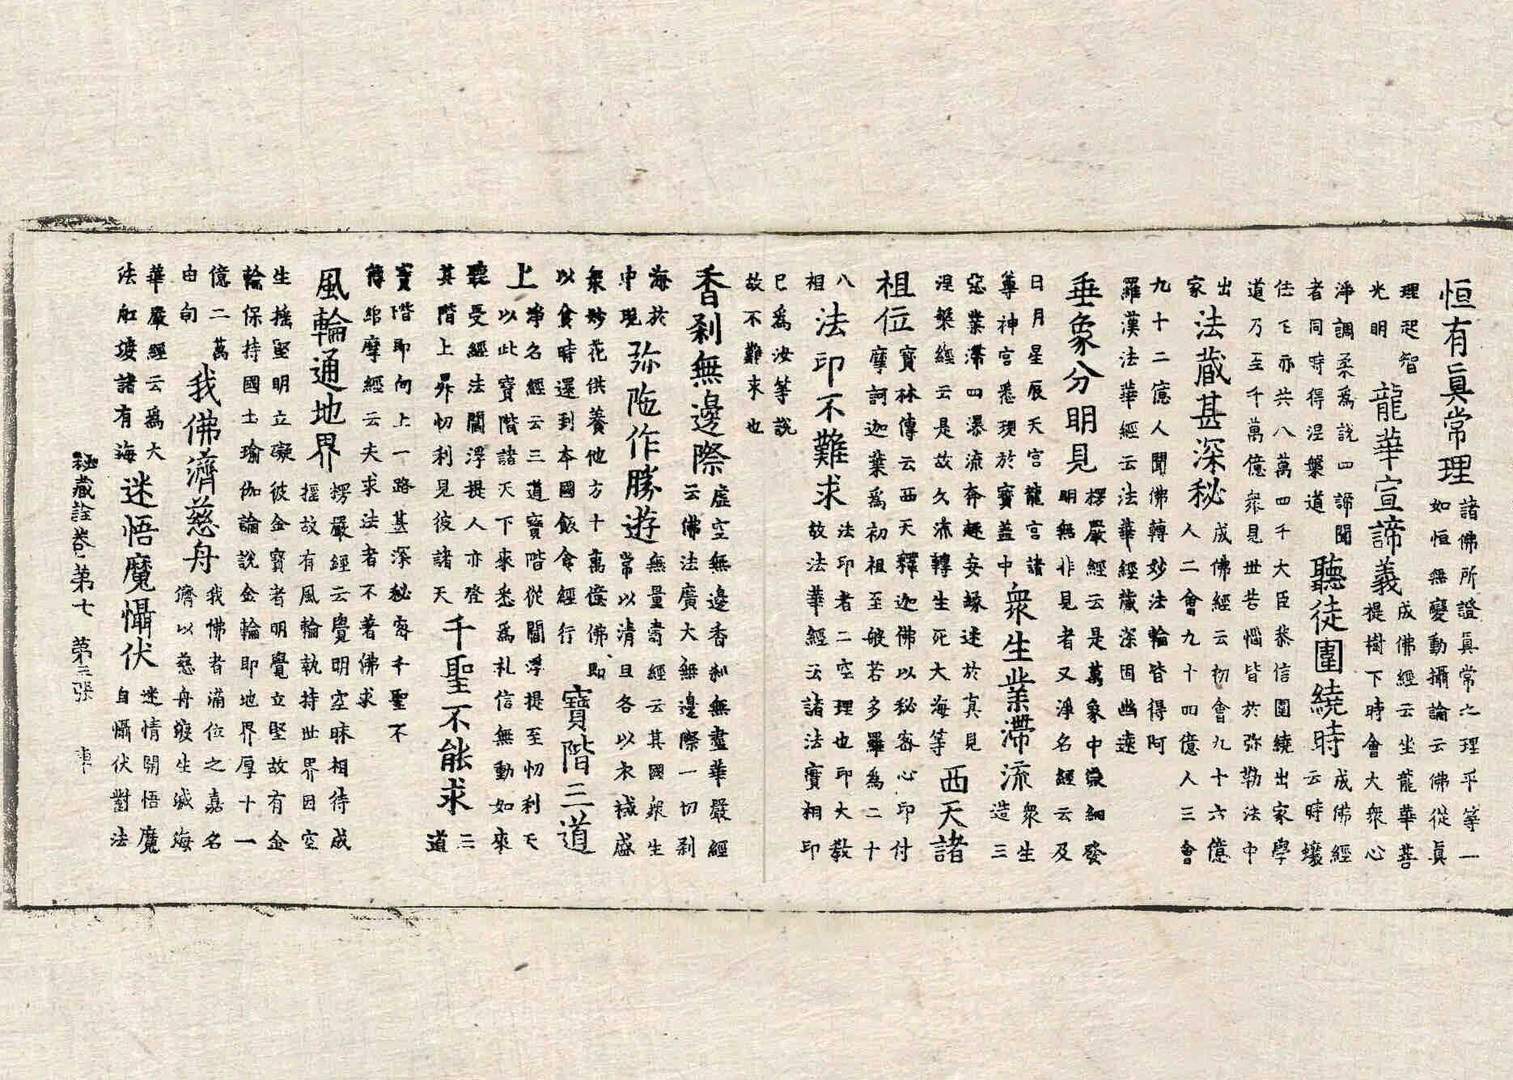 恒有眞常理諸佛所證眞常之理平等一如恒無變動攝論云佛從眞
理起智光明龍華宣諦義成佛經云坐龍華菩提樹下時會大衆心
淨調柔爲說四諦聞者同時得涅槃道聽徒圍繞時成佛經云時蠰
佉王亦共八萬四千大臣恭信圍繞出家學道乃至千萬億衆見世苦惱皆於弥勒法中
出家法藏甚深秘成佛經云初會九十六億人二會九十四億人三會
九十二億人聞佛轉妙法輪皆得阿羅漢法華經云法華經藏深固幽遠
垂象分明見楞嚴經云是萬象中微細發明無非見者又淨名經云及
日月星辰天宮龍宮諸尊神宮悉現於寶盖中衆生業滯流衆生造三
惡業滯四瀑流奔趣妄緣迷於真見涅槃經云是故久流轉生死大海等西天諸
祖位寶林傳云西天釋迦佛以秘密心印付摩訶迦葉爲初祖至般若多羅爲二十
八祖法印不難求法印者二空理也印大教故法華經云諸法實相印
已爲汝等說故不難求也
香刹無邊際虛空無邊香刹無盡華嚴經云佛法廣大無邊際一切刹
海於中現弥陁作勝遊無量壽經云其國衆生常以清旦各以衣裓盛
衆妙花供養他方十萬億佛即以食時還到本國飯食經行寶階三道
上淨名經云三道寶階從閻浮提至忉利天以此寶階諸天下來悉爲礼信無動如來
聽受經法閻浮提人亦登其階上昇忉利見彼諸天千聖不能求三道
寳階即向上一路甚深秘密千聖不傳維摩經云夫求法者不著佛求
風輪通地界楞嚴經云覺明空昧相待成揺故有風輪執持世界因空
生揺堅明立礙彼金寶者明覺立堅故有金輪保持國土瑜伽論說金輪即地界厚十一
億二萬由旬我佛濟慈舟我佛者滿位之嘉名濟以慈舟生滅海
華嚴經云爲大法舡渡諸有海迷悟魔懾伏迷情開悟魔自懾伏對法
秘藏詮卷第七 第三張 車